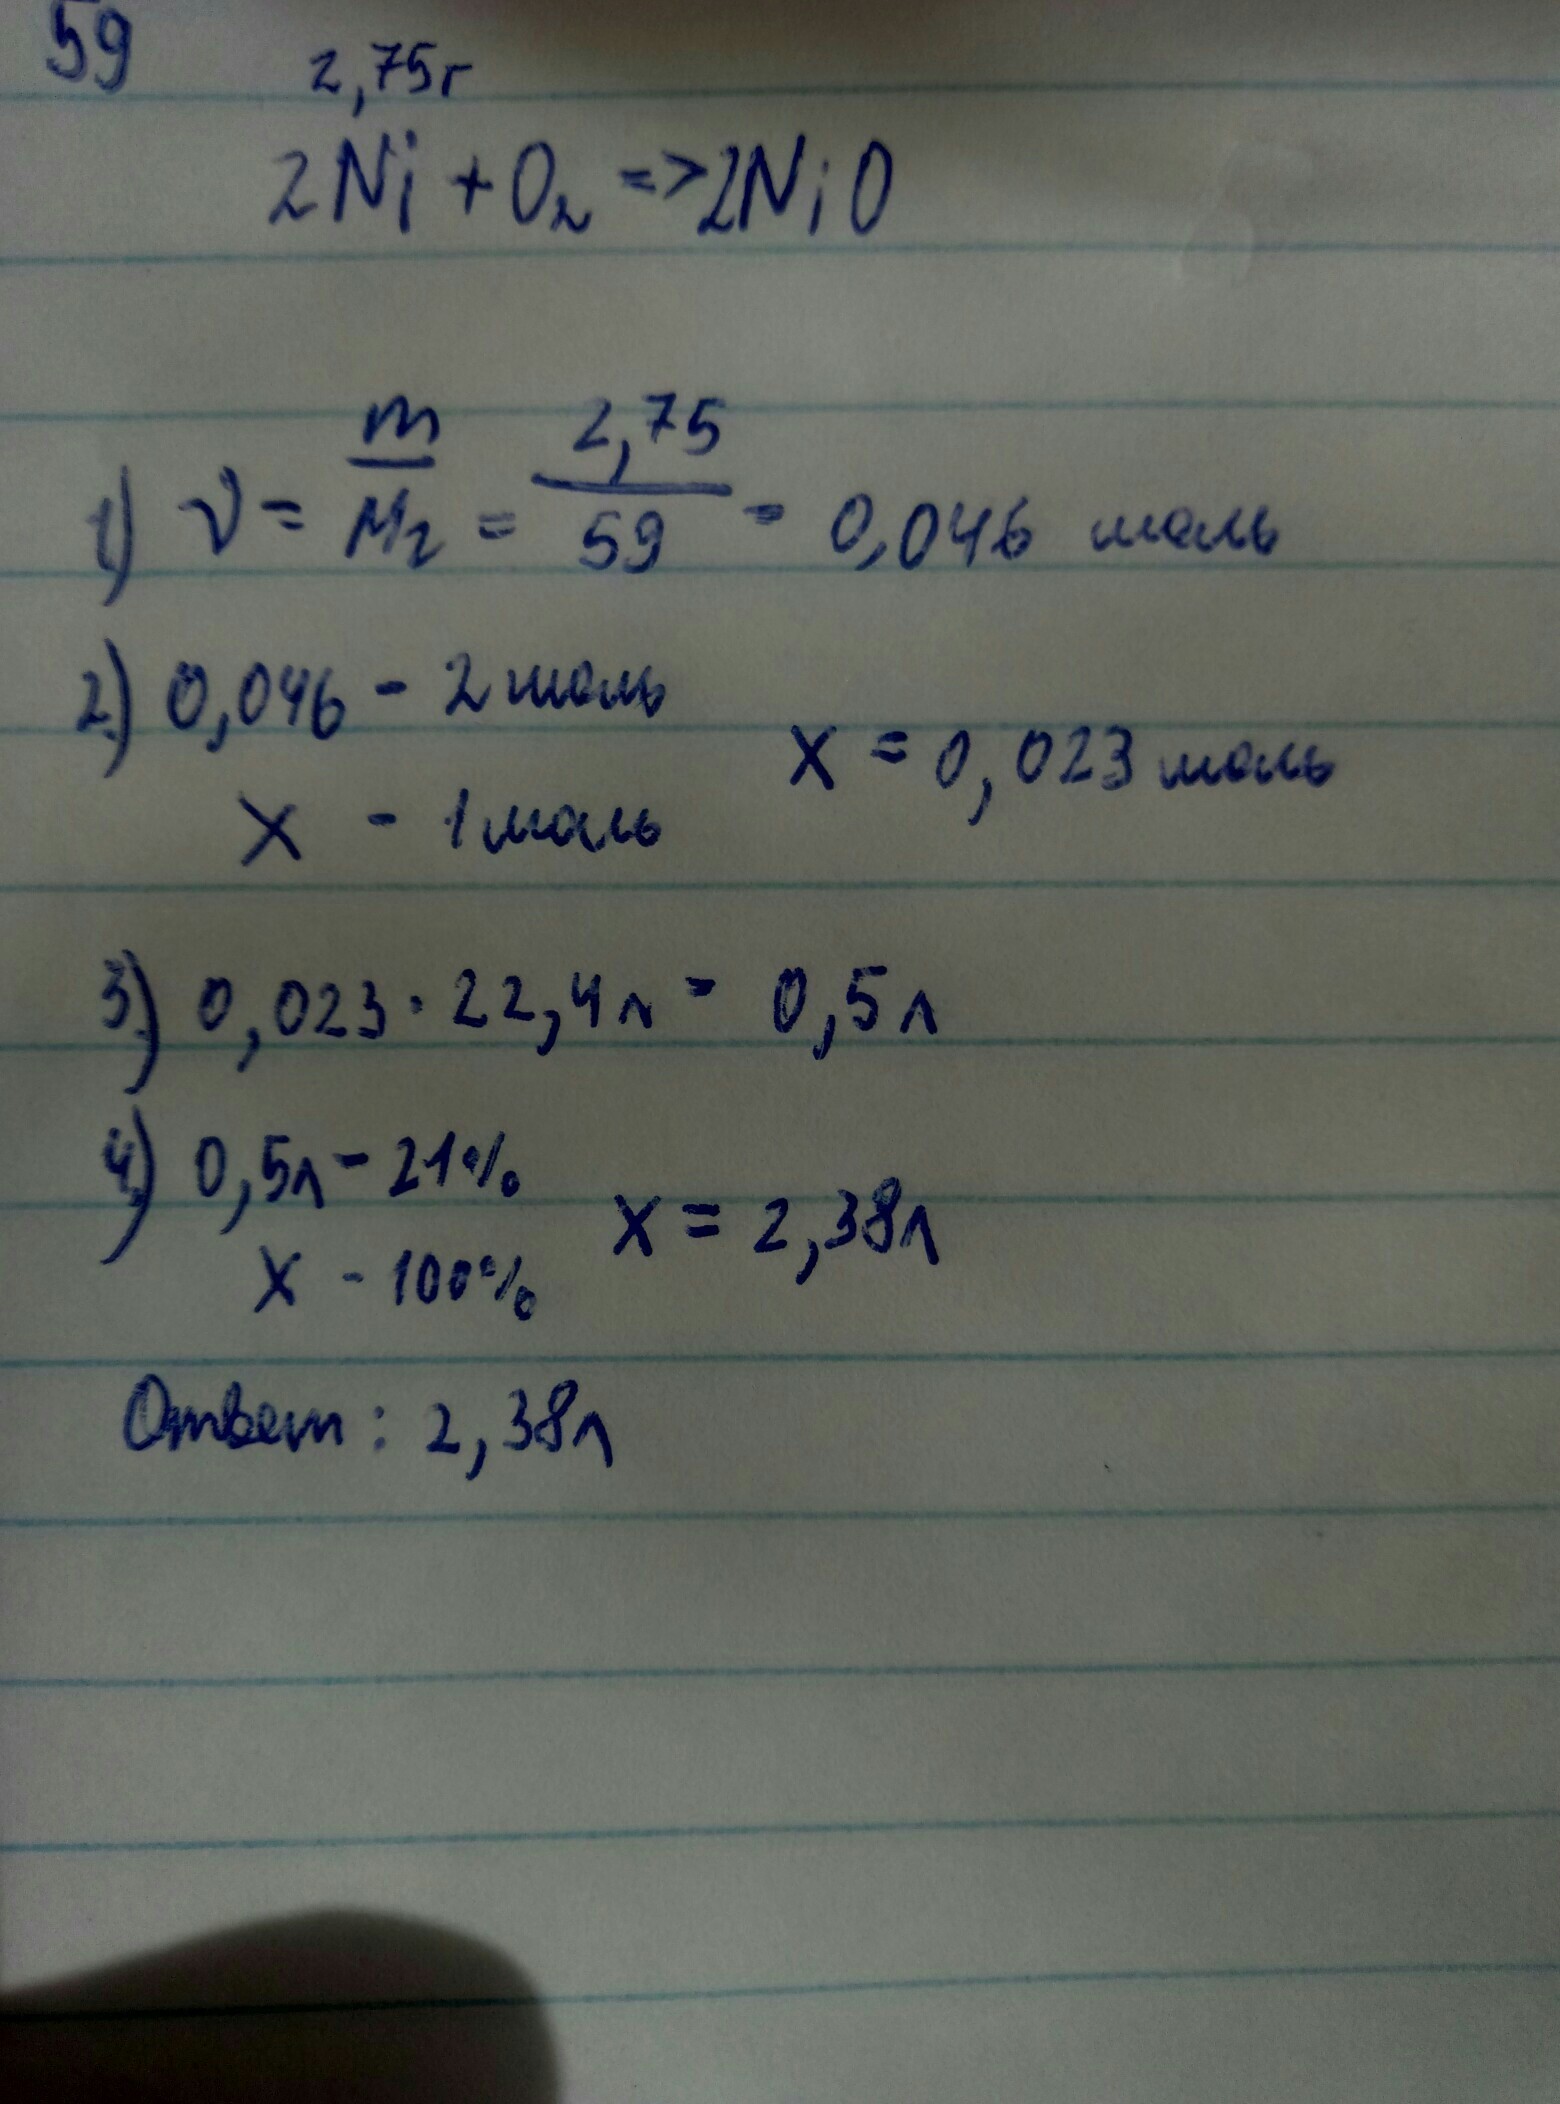 59
2,75г
2Ni + O₂ => 2NiO
1) ν = m/Mr = 2,75/59 = 0,046 моль
2) 0,046 - 2 моль
x = 0,023 моль
x - 1 моль
3) 0,023 · 22,4л = 0,5л
4) 0,5л - 21%
x = 2,38л
x - 100%
Ответ: 2,38л